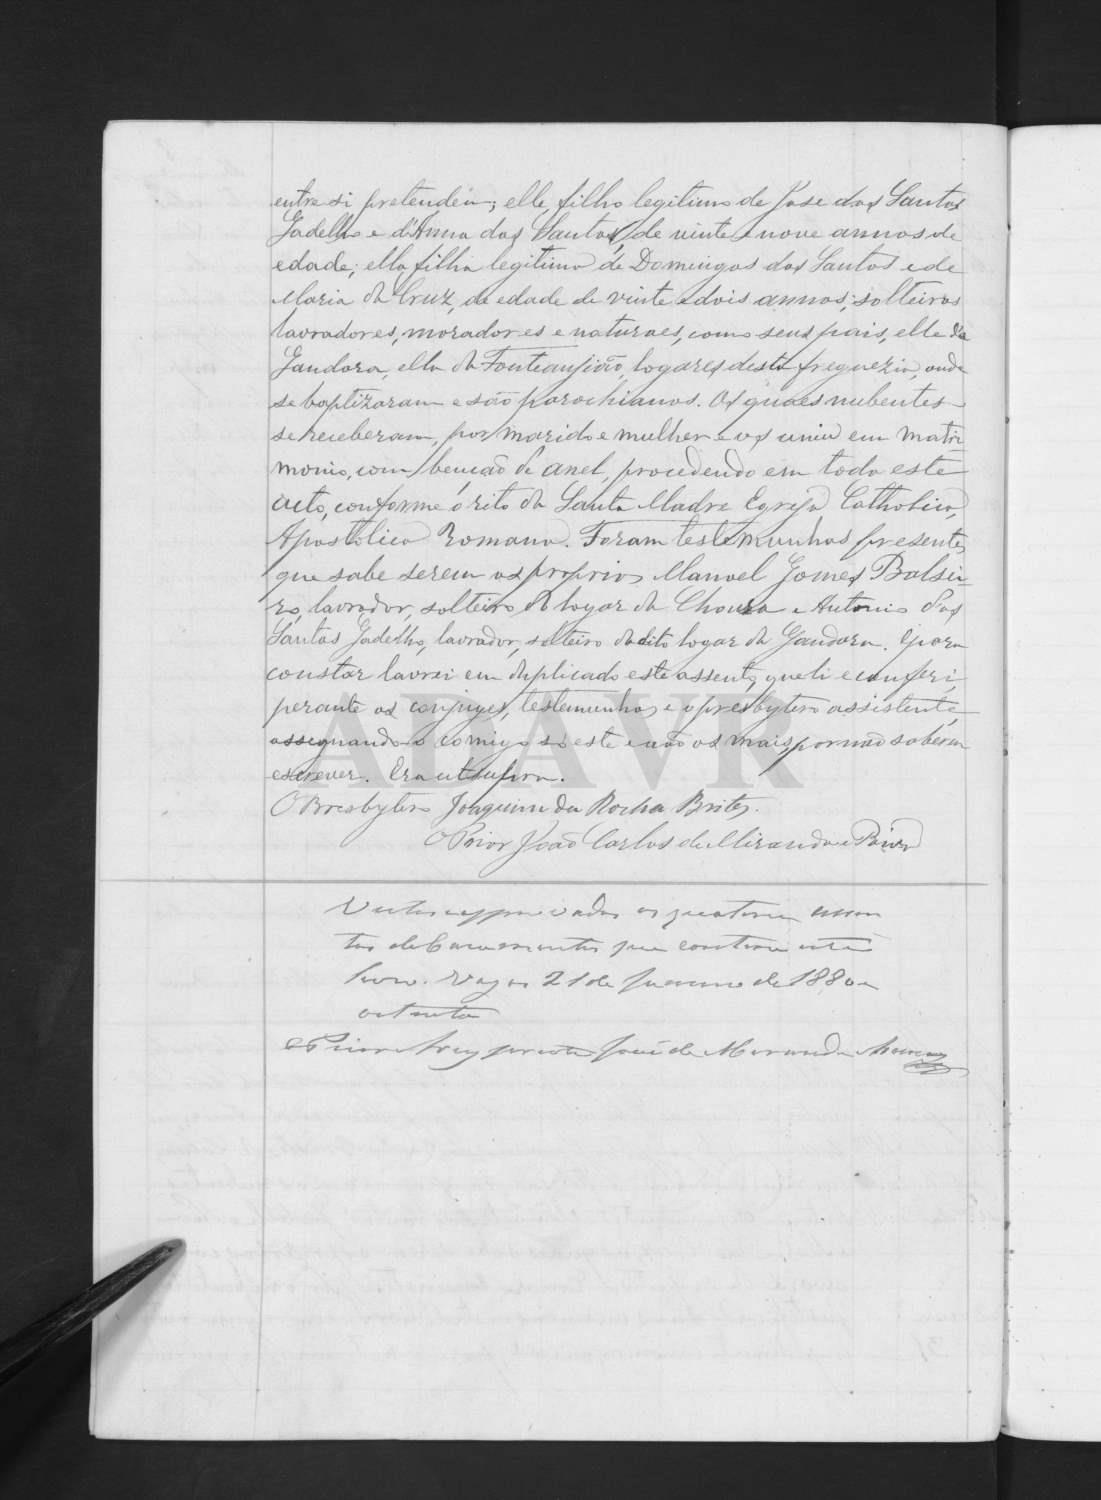 entre si pretendem; elle filho legitimo de José dos Santos
Gadelho e d'Anna dos Santos, de vinte e nove annos de
edade; ella filha legitima de Domingos dos Santos e de
Maria da Cruz, de edade de vinte e dois annos; solteiros
lavradores, moradores e naturaes, como seus pais, elle da
Gandara, ella da Fonte, logares desta freguezia, onde
se baptizaram e são parochianos. Os quaes nubentes
se receberam por marido e mulher e os uniu em matri
monio, com bencão de anel, procedendo em todo este
acto, conforme o rito da Santa Madre Egreja Catholica,
Apostolica Romana. Foram testemunhas presentes,
que sabe serem os proprios Manoel Gomes Balsei-
ro, lavrador, solteiro do logar da Chousa e Antonio dos
Santos Gadelho, lavrador, solteiro do dito logar da Gandara. E para
constar lavrei em duplicado este assento, que li e conferi,
perante os conjuges, testemunhas e o presbytero assistente,
assegnando-o comigo só este e não os mais, por não saberem
escrever. Era ut supra.
O Presbytero Joaquim da Rocha Brites.
O Prior João Carlos de Miranda e Paiva
Vistos e approvados os quatorze assen
tos de Casamentos que contem este
livro. Vagos 21 de Janeiro de 1880 e
oitenta
O Prior Arcypreste José de Miranda
ADAVR